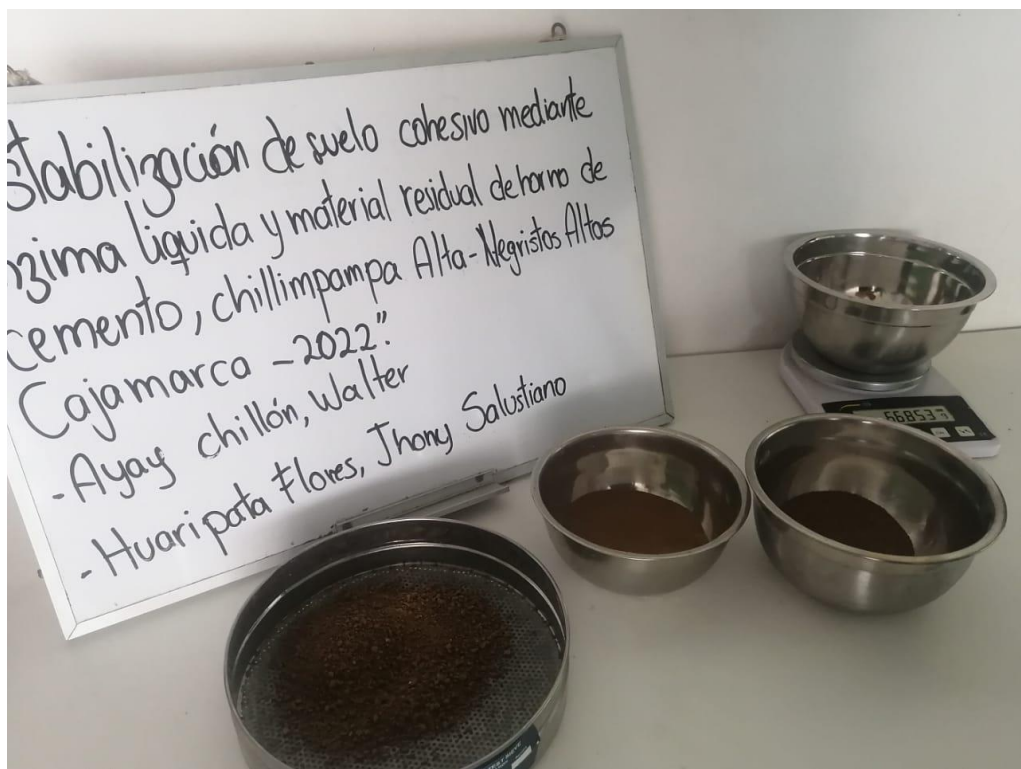 stabilización de suelo cohesivo mediante
nzima liquida y material residual de horno de
cemento, chillimpampa Alta-Negritos Altos
Cajamarca - 2022".
- Ayay chillón, Walter
- Huaripata Flores, Jhony Salustiano
66853
TEST SIEVE